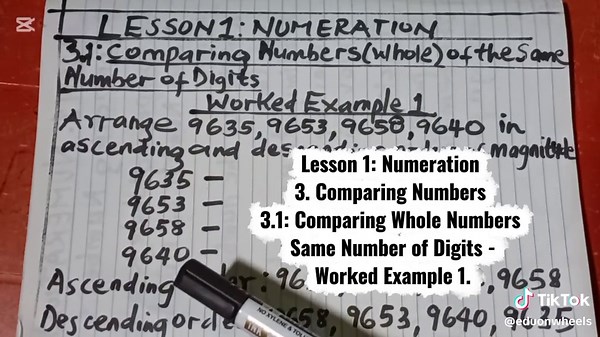 LESSON 1: NUMERATION
3.1: Comparing Numbers (whole) of the Same
Number of Digits
Worked Example 1
Arrange 9635, 9653, 9658, 9640 in
ascending and magnitude
9635 -
9653 -
9658 -
9640 -
Lesson 1: Numeration
3. Comparing Numbers
3.1: Comparing Whole Numbers
Same Number of Digits -
Worked Example 1.
Ascending : , 9658
Descending 9653, 9640, 9635
TikTok
@eduonwheels